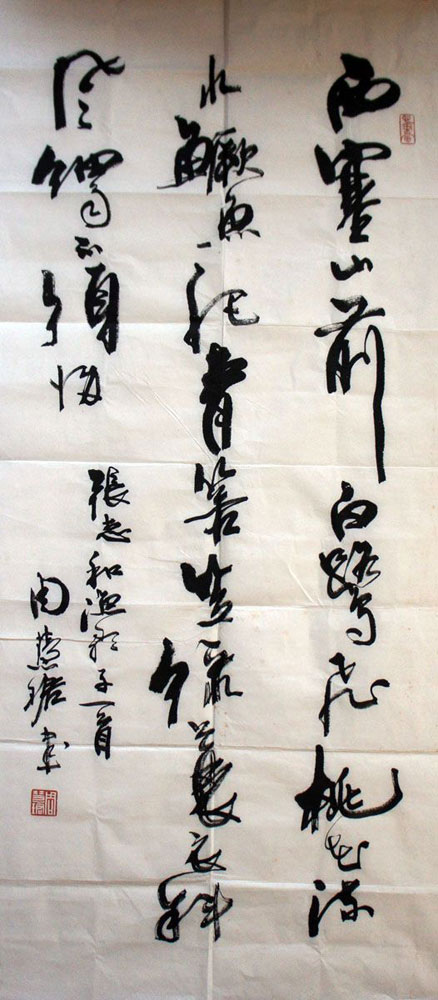 西塞山前白鷺飛桃花流
水鱖魚肥青箬笠綠蓑衣斜
風細雨不須歸
張志和漁歌子一首
周慧珺書